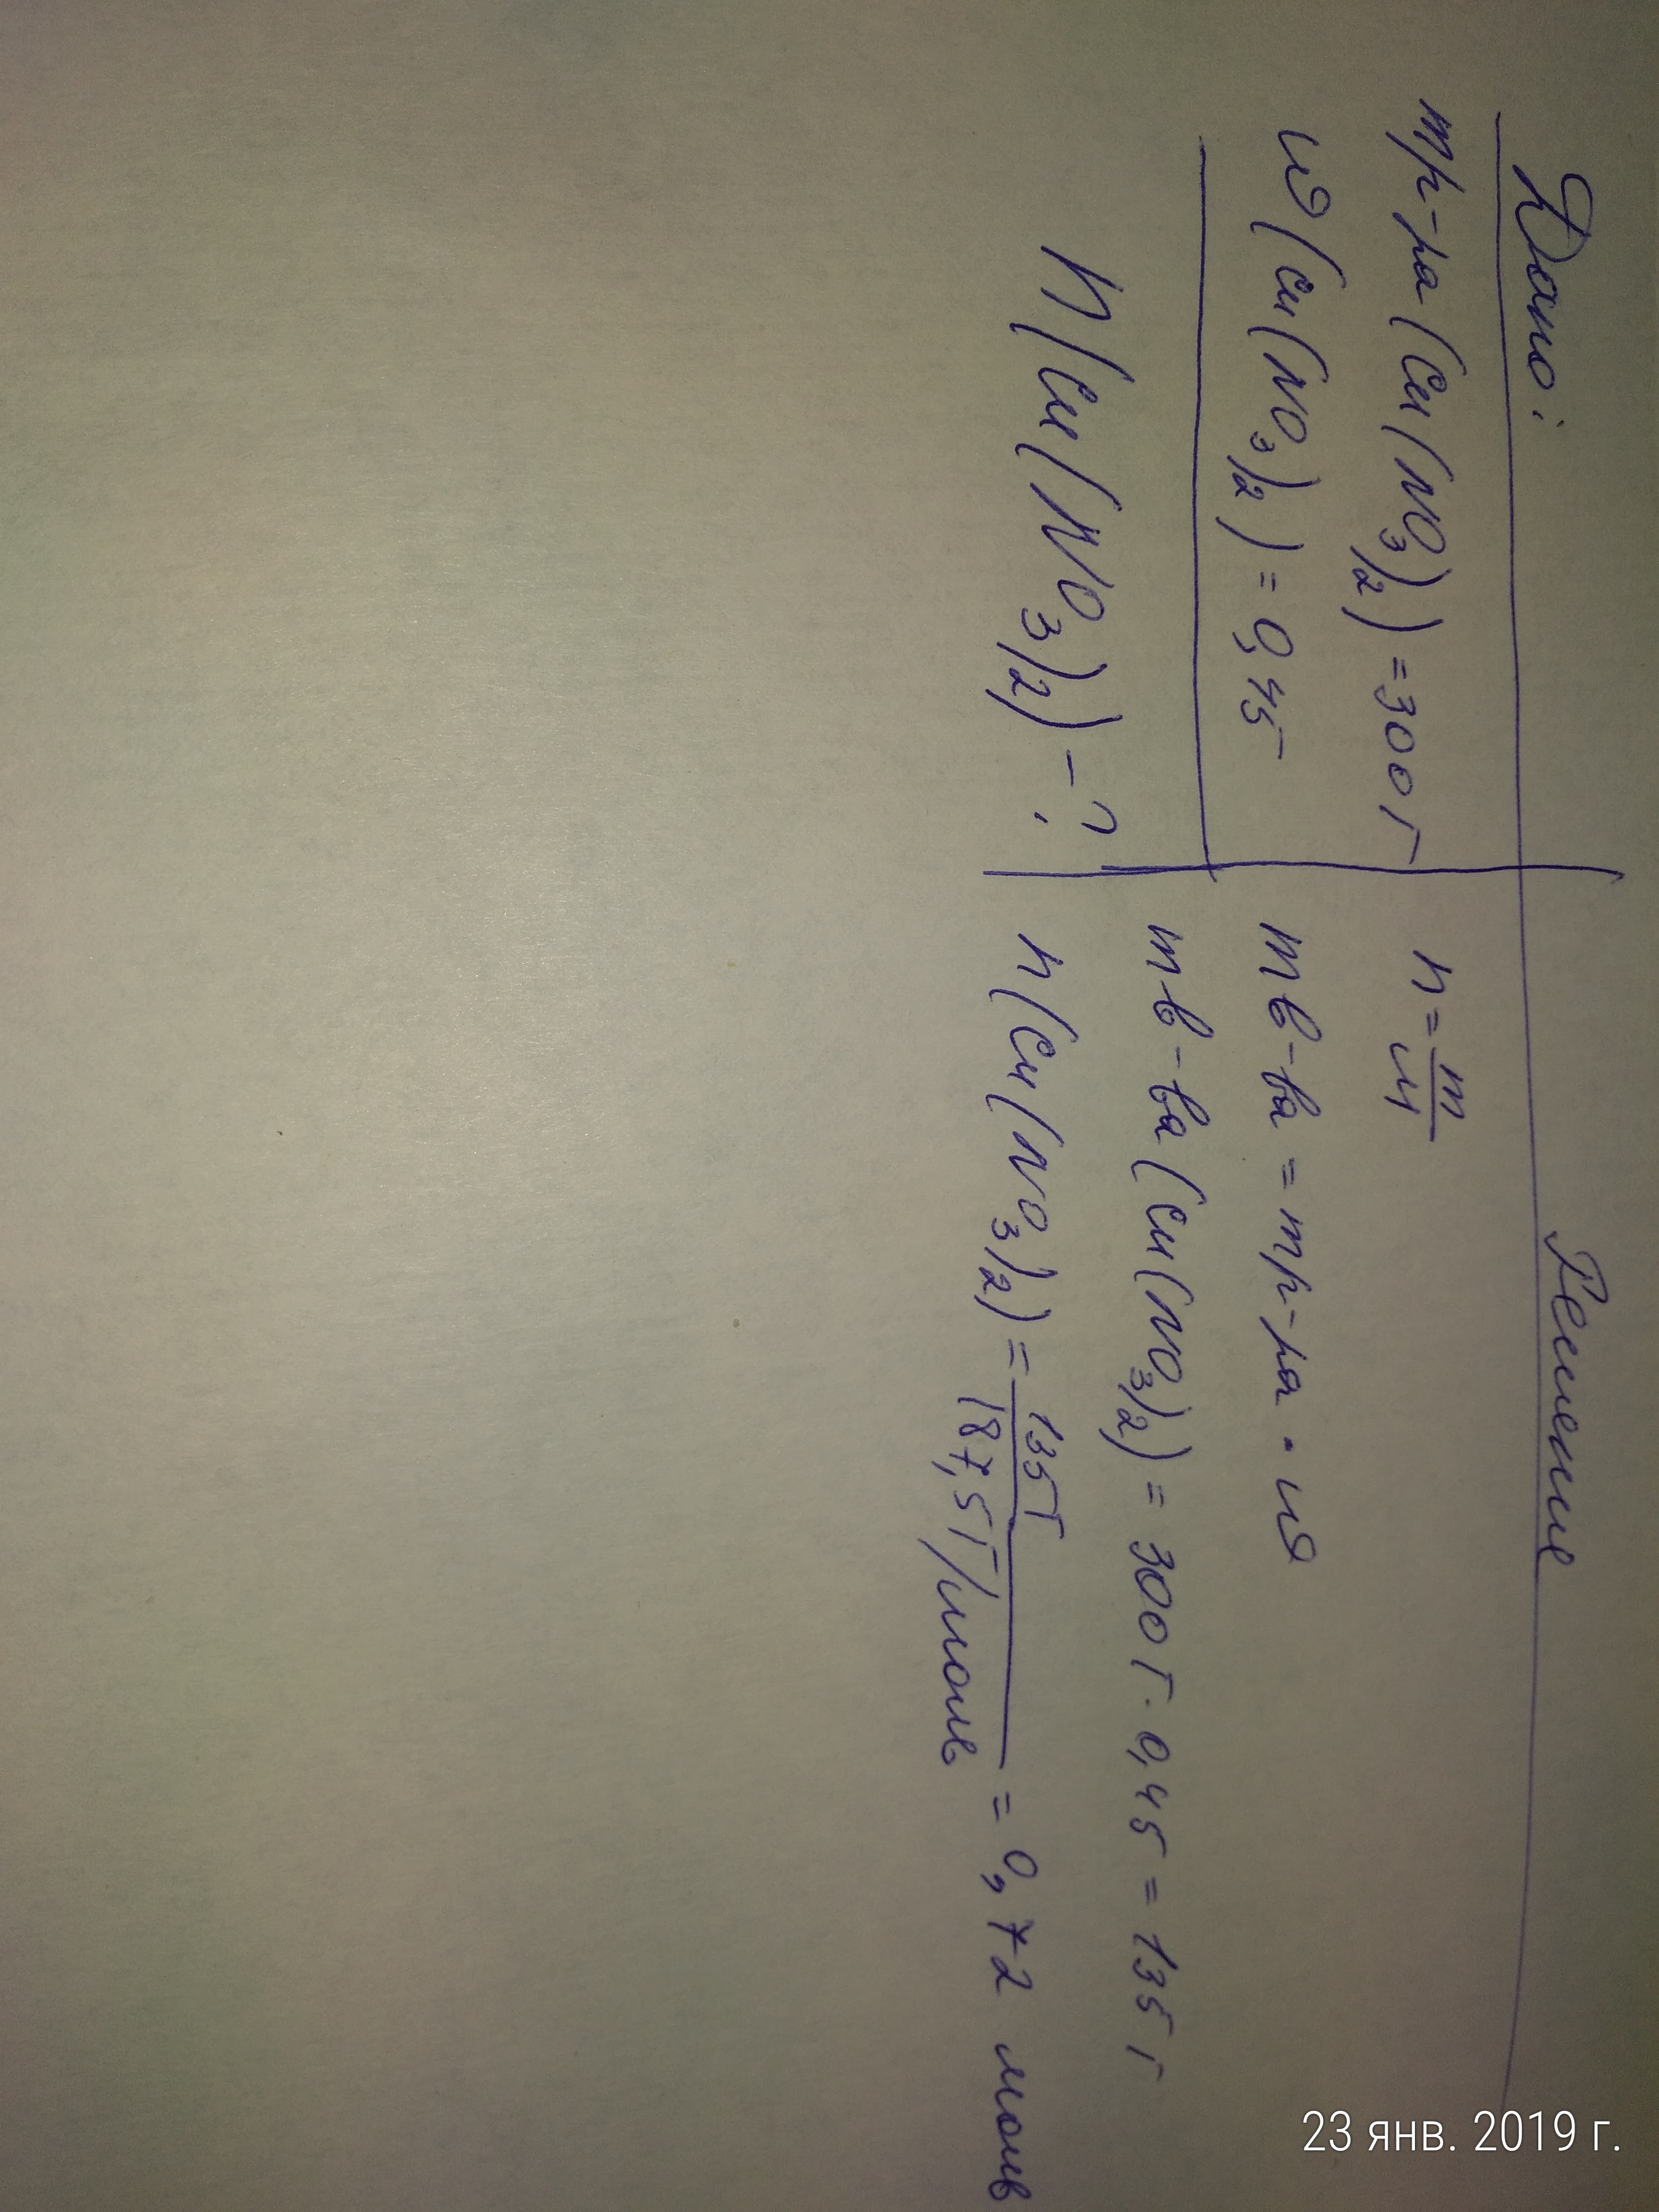 Дано:
mр-ра(Cu(NO₃)₂)=300г
ω(Cu(NO₃)₂)=0,45
n(Cu(NO₃)₂)-?
Решение
n=m/M
mв-ва=mр-ра·ω
mв-ва(Cu(NO₃)₂)=300г·0,45=135г
n(Cu(NO₃)₂)=135г/187,5г/моль=0,72 моль
23 янв. 2019 г.